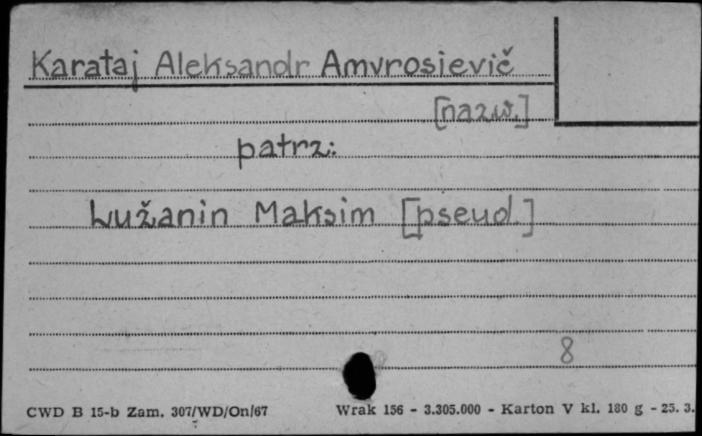 Karataj Aleksandr Amvrosievič
[nazw.]
patrz:
Lužanin Maksim [pseud.]
8
CWD B 15-b Zam. 307/WD/On/67 Wrak 156 - 3.305.000 - Karton V kl. 180 g - 25. 3.